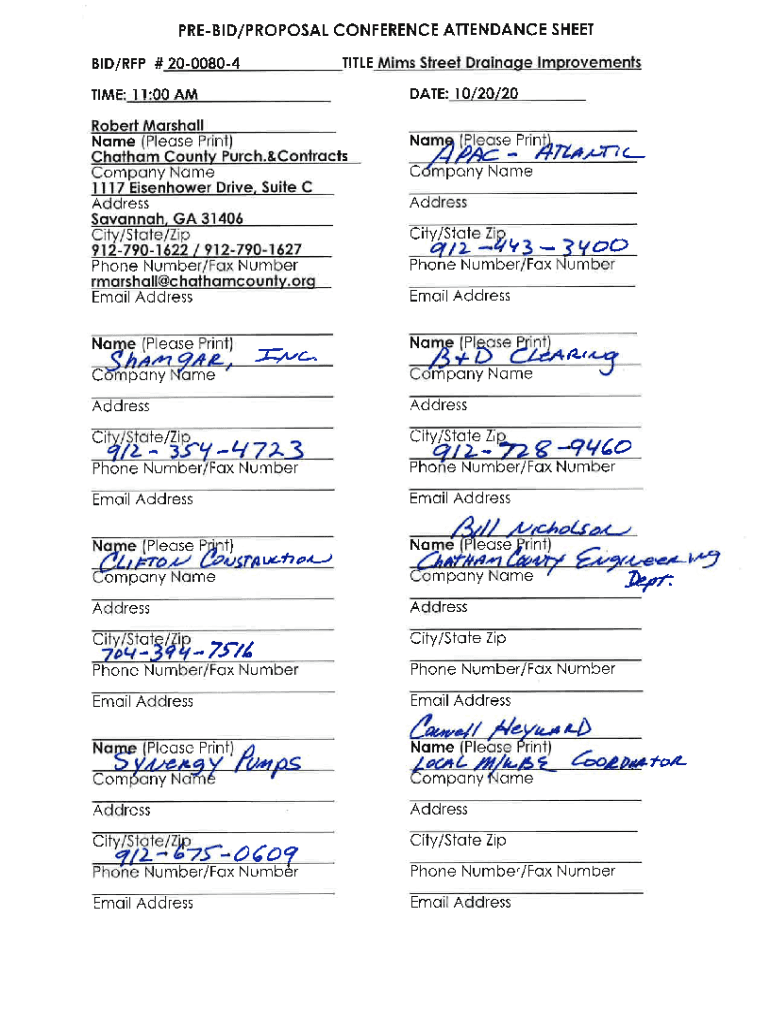 PRE-BID/PROPOSAL CONFERENCE ATTENDANCE SHEET
BID/RFP # 20-0080-4 TITLE Mims Street Drainage Improvements
TIME: 11:00 AM DATE: 10/20/20
Robert Marshall
Name (Please Print)
Chatham County Purch.&Contracts
Company Name
1117 Eisenhower Drive, Suite C
Address
Savannah, GA 31406
City/State/Zip
912-790-1622 / 912-790-1627
Phone Number/Fax Number
rmarshall@chathamcounty.org
Email Address
Name (Please Print)
APAC - ATLANTIC
Company Name
Address
City/State Zip
912-443-3400
Phone Number/Fax Number
Email Address
Name (Please Print)
SHAMGAR, INC.
Company Name
Address
City/State/Zip
912-354-4723
Phone Number/Fax Number
Email Address
Name (Please Print)
B+D CLEARING
Company Name
Address
City/State Zip
912-728-9460
Phone Number/Fax Number
Email Address
Name (Please Print)
CLIFTON CONSTRUCTION
Company Name
Address
City/State/Zip
704-394-7516
Phone Number/Fax Number
Email Address
Bill Nicholson
Name (Please Print)
CHATHAM COUNTY ENGINEERING
Dept.
Company Name
Address
City/State Zip
Phone Number/Fax Number
Email Address
Name (Please Print)
SYNERGY PUMPS
Company Name
Address
City/State/Zip
912-675-0609
Phone Number/Fax Number
Email Address
HEYWARD
Name (Please Print)
LOCAL M/WBE COORDINATOR
Company Name
Address
City/State Zip
Phone Number/Fax Number
Email Address